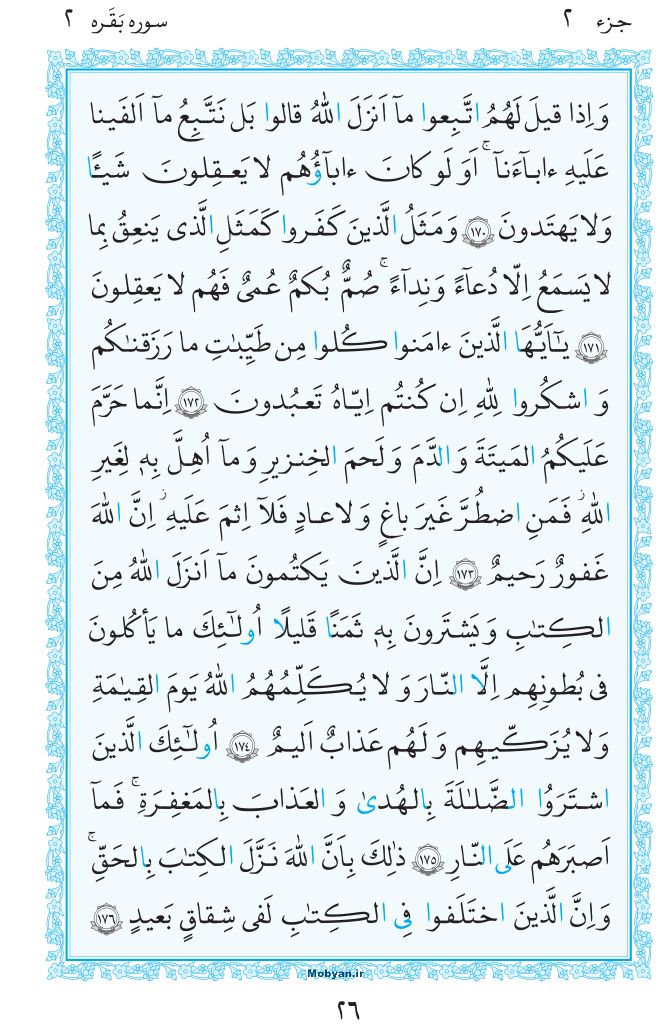 جزء ٢ سوره بَقَره ٢
وَاِذا قيلَ لَهُمُ اتَّبِعوا مآ اَنزَلَ اللّٰهُ قالوا بَل نَتَّبِعُ مآ اَلفَينا
عَلَيهِ ءابآءَنآ ۚ اَوَ لَو كانَ ءابآؤُهُم لا يَعقِلونَ شَيـًٔا
وَلا يَهتَدونَ ﴿١٧٠﴾ وَمَثَلُ الَّذينَ كَفَروا كَمَثَلِ الَّذى يَنعِقُ بِما
لا يَسمَعُ اِلّا دُعآءً وَنِدآءً ۚ صُمٌّ بُكمٌ عُمىٌ فَهُم لا يَعقِلونَ
﴿١٧١﴾ يـٰٓاَيُّهَا الَّذينَ ءامَنوا كُلوا مِن طَيِّبـٰتِ ما رَزَقنـٰكُم
وَ اشكُروا لِلّٰهِ اِن كُنتُم اِيّاهُ تَعبُدونَ ﴿١٧٢﴾ اِنَّما حَرَّمَ
عَلَيكُمُ المَيتَةَ وَ الدَّمَ وَ لَحمَ الخِنزيرِ وَ مآ اُهِلَّ بِهٖ لِغَيرِ
اللّٰهِ ۖ فَمَنِ اضطُرَّ غَيرَ باغٍ وَ لا عادٍ فَلآ اِثمَ عَلَيهِ ۚ اِنَّ اللّٰهَ
غَفورٌ رَحيمٌ ﴿١٧٣﴾ اِنَّ الَّذينَ يَكتُمونَ مآ اَنزَلَ اللّٰهُ مِنَ
الكِتـٰبِ وَ يَشتَرونَ بِهٖ ثَمَنًا قَليلًا اُولـٰٓئِكَ ما يَأكُلونَ
فى بُطونِهِم اِلَّا النّارَ وَ لا يُكَلِّمُهُمُ اللّٰهُ يَومَ القِيـٰمَةِ
وَلا يُزَكّيهِم وَ لَهُم عَذابٌ اَليمٌ ﴿١٧٤﴾ اُولـٰٓئِكَ الَّذينَ
اشتَرَوُا الضَّلـٰلَةَ بِالهُدىٰ وَ العَذابَ بِالمَغفِرَةِ ۚ فَمآ
اَصبَرَهُم عَلَى النّارِ ﴿١٧٥﴾ ذٰلِكَ بِاَنَّ اللّٰهَ نَزَّلَ الكِتـٰبَ بِالحَقِّ ۚ
وَ اِنَّ الَّذينَ اختَلَفوا فِى الكِتـٰبِ لَفى شِقاقٍ بَعيدٍ ﴿١٧٦﴾
Mobyan.ir
٢٦